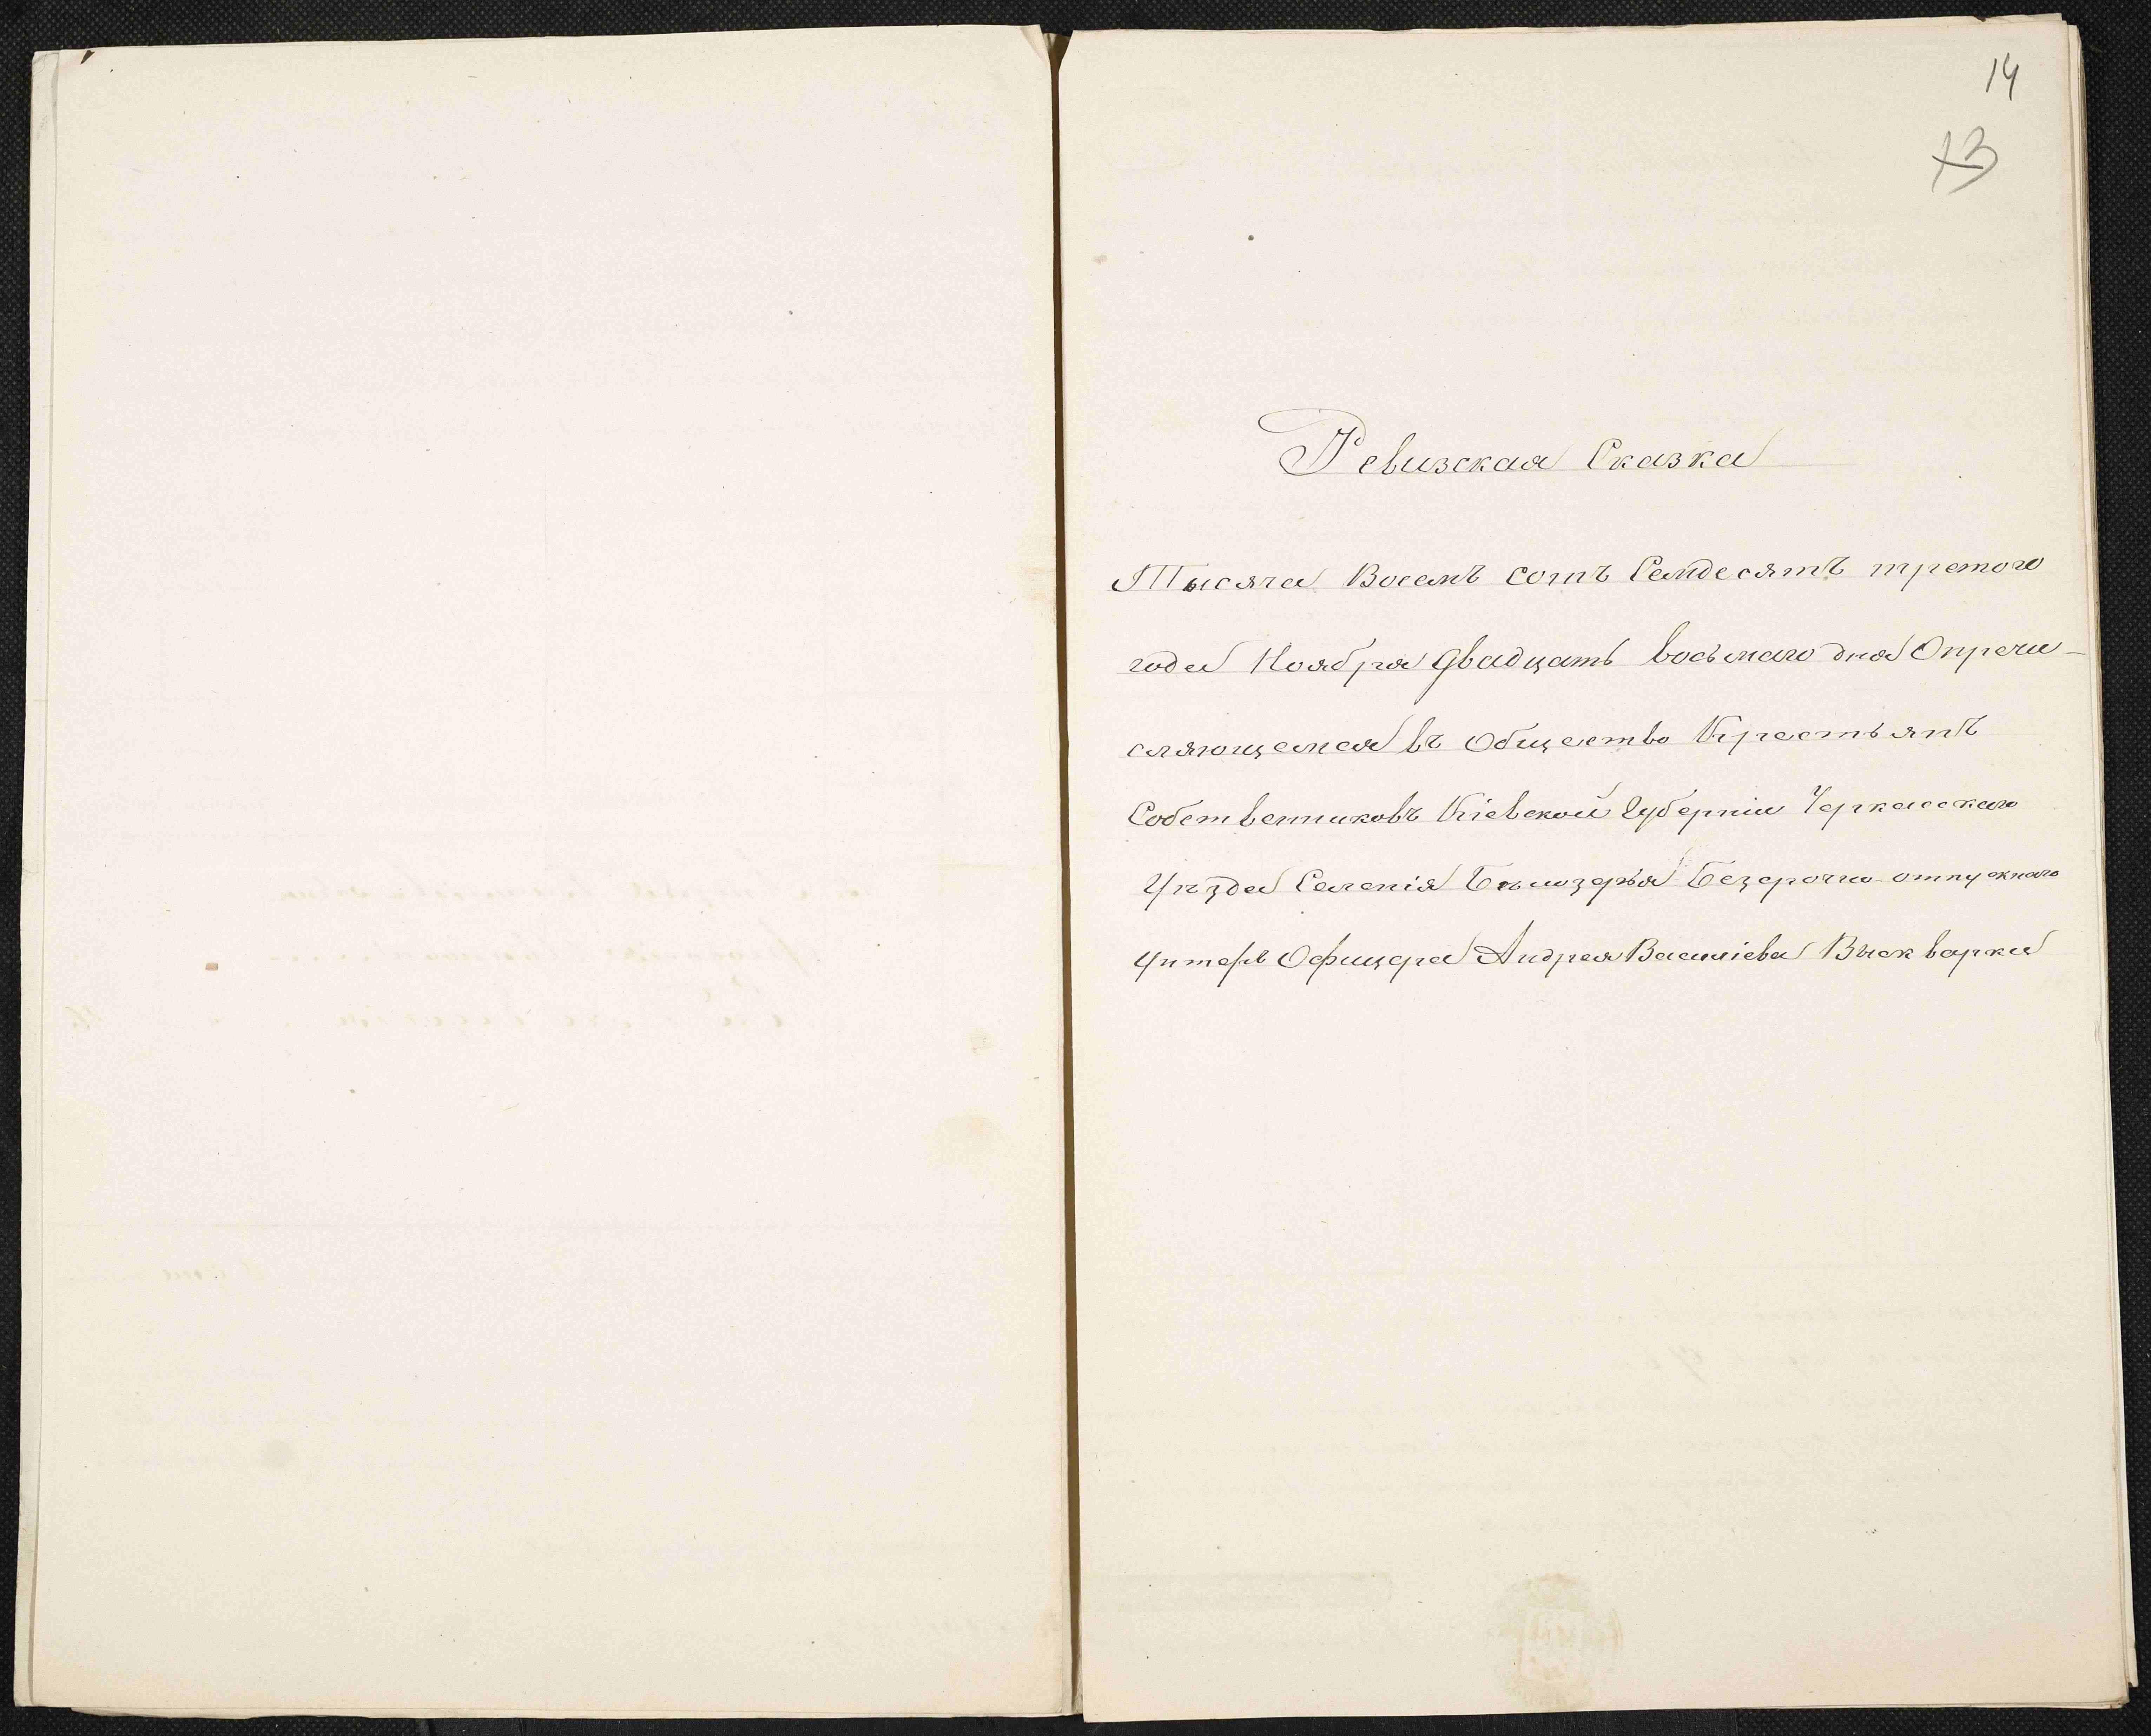 14
13
Ревизская Сказка
Тысяча Восемъ сотъ Семдесятъ третого
года Ноября двадцать восьмаго дня О причи-
сляющемся въ Общество Крестьянъ
Собственниковъ Кіевской Губерніи Черкасскаго
Уѣзда Селенія Бѣлозерья Безсрочно-отпускнаго
Унтеръ Офицера Андрея Василіева